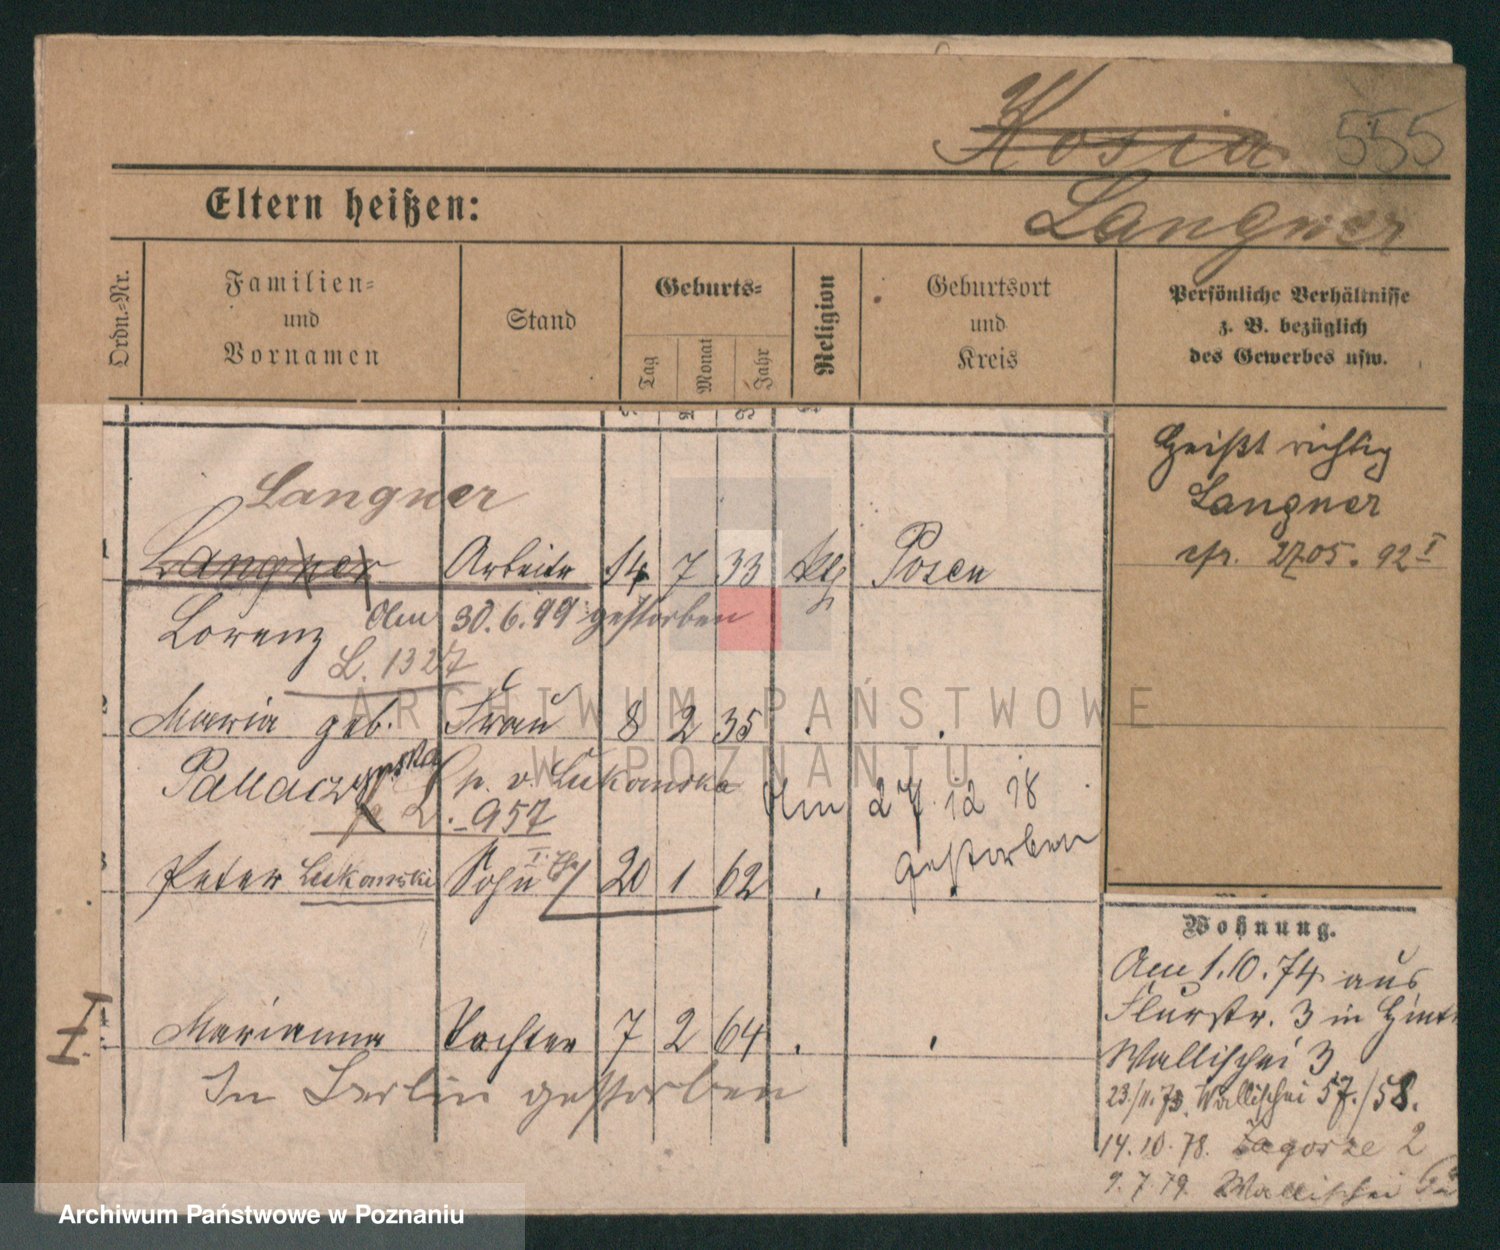 Kosia 555
Eltern heißen: Langner
Ordn.-Nr.
Familien-
und
Vornamen
Stand
Geburts-
Tag
Monat
Jahr
Religion
Geburtsort
und
Kreis
Persönliche Verhältnisse
z. B. bezüglich
des Gewerbes usw.
Heißt richtig
Langner
cfr. 2705. 92 I
Langner
1 Langner Arbeiter 14 7 33 Posen
Lorenz Am 30.6.99 gestorben
L. 1327
2 Maria geb. Frau 8 2 35
p. v. Lukomska
L. 957
Am 27 12 18
gestorben
3 Peter Lukomski Sohn I. 20 1 62
I 4 Marianna Tochter 7 2 64
In Berlin gestorben
Wohnung.
Am 1.10.74 aus
Flurstr. 3 in
Wallischei 3
23/11.75. Wallischei 57./58.
14.10.78. Zagorze 2
9.7.79. Wallischei
ARCHIWUM PAŃSTWOWE
W POZNANIU
Archiwum Państwowe w Poznaniu